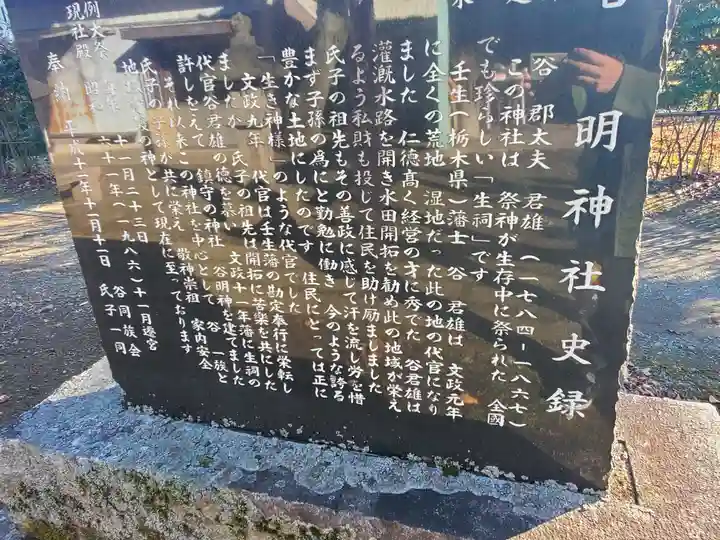 明神社史録
谷 郡太夫 君雄 (一七八四-一八六七)
この神社は 祭神が生存中に祭られた 全國
でも珍らしい「生祠」です
壬生(栃木県)藩士 谷 君雄は 文政元年
に全くの荒地 湿地だった此の地の代官になり
ました 仁徳高く経営の才に秀でた 谷君雄は
灌漑水路を開き水田開拓を勧め此の地域が栄え
るよう私財も投じて住民を助け励ましました
氏子の祖先もその善政に感じて汗を流し労を惜
まず子孫の為にと勤勉に働き 今のような誇る
豊かな土地にしたのです 住民にとっては正に
「生き神様」のような代官でした
文政九年 代官は壬生藩の勘定奉行に栄転し
ましたが 氏子の祖先は開拓に苦楽を共にした
代官谷君雄の徳を慕い 文政十一年藩に生祠の
許しをえて 鎮守の神社 谷明神を建てました
それ以来この神社を中心として 谷 一族と
氏子の子孫が共に栄え 敬神崇祖 家内安全
地 の神として現在に至っております
例大祭 十一月二十三日
現社殿 昭 六十一年(一九八六)十一月遷宮
谷同族会
奉 納 平成十一年十一月十二日 氏子一同